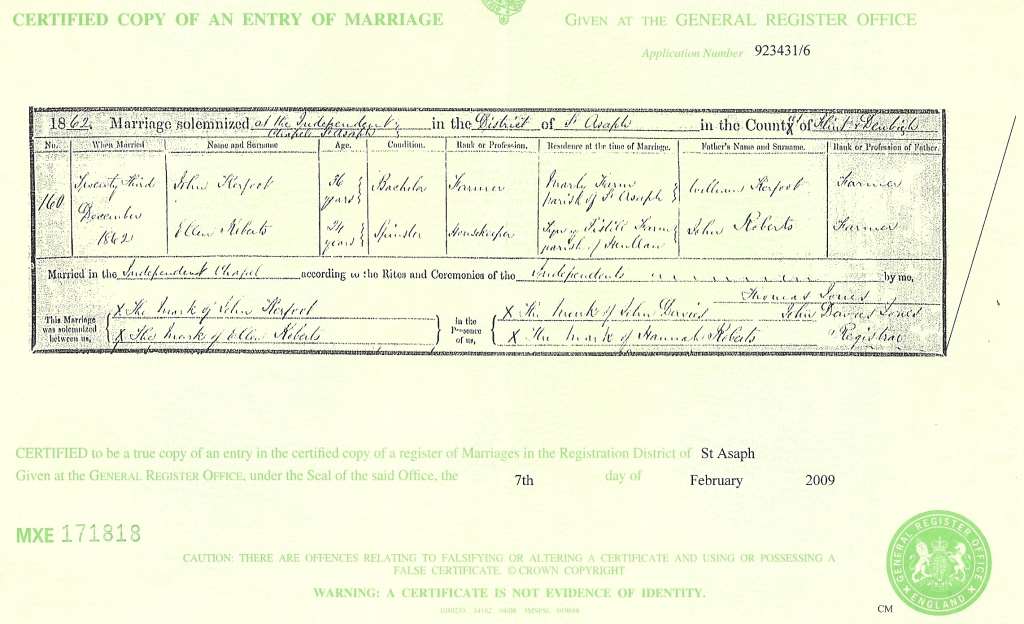 CERTIFIED COPY OF AN ENTRY OF MARRIAGE
GIVEN AT THE GENERAL REGISTER OFFICE
Application Number 923431/6
1862. Marriage solemnized at the Independent Chapel St Asaph in the District of St Asaph in the County of Flint & Denbigh
No. When Married Name and Surname Age. Condition. Rank or Profession. Residence at the time of Marriage. Father's Name and Surname. Rank or Profession of Father.
160 Twenty third December 1862
John Kerfoot 36 years Bachelor Farmer Marly Farm parish of St Asaph William Kerfoot Farmer
Ellen Roberts 24 years Spinster Housekeeper Farm parish of Henllan John Roberts Farmer
Married in the Independent Chapel according to the Rites and Ceremonies of the Independents by me,
Thomas Jones
John Davies Jones
Registrar
This Marriage was solemnized between us,
X The mark of John Kerfoot
X The mark of Ellen Roberts
In the Presence of us,
X The mark of John Davies
X The mark of Hannah Roberts
CERTIFIED to be a true copy of an entry in the certified copy of a register of Marriages in the Registration District of St Asaph
Given at the GENERAL REGISTER OFFICE, under the Seal of the said Office, the 7th day of February 2009
MXE 171818
CAUTION: THERE ARE OFFENCES RELATING TO FALSIFYING OR ALTERING A CERTIFICATE AND USING OR POSSESSING A
FALSE CERTIFICATE. © CROWN COPYRIGHT
WARNING: A CERTIFICATE IS NOT EVIDENCE OF IDENTITY.
GENERAL REGISTER OFFICE
ENGLAND
CM